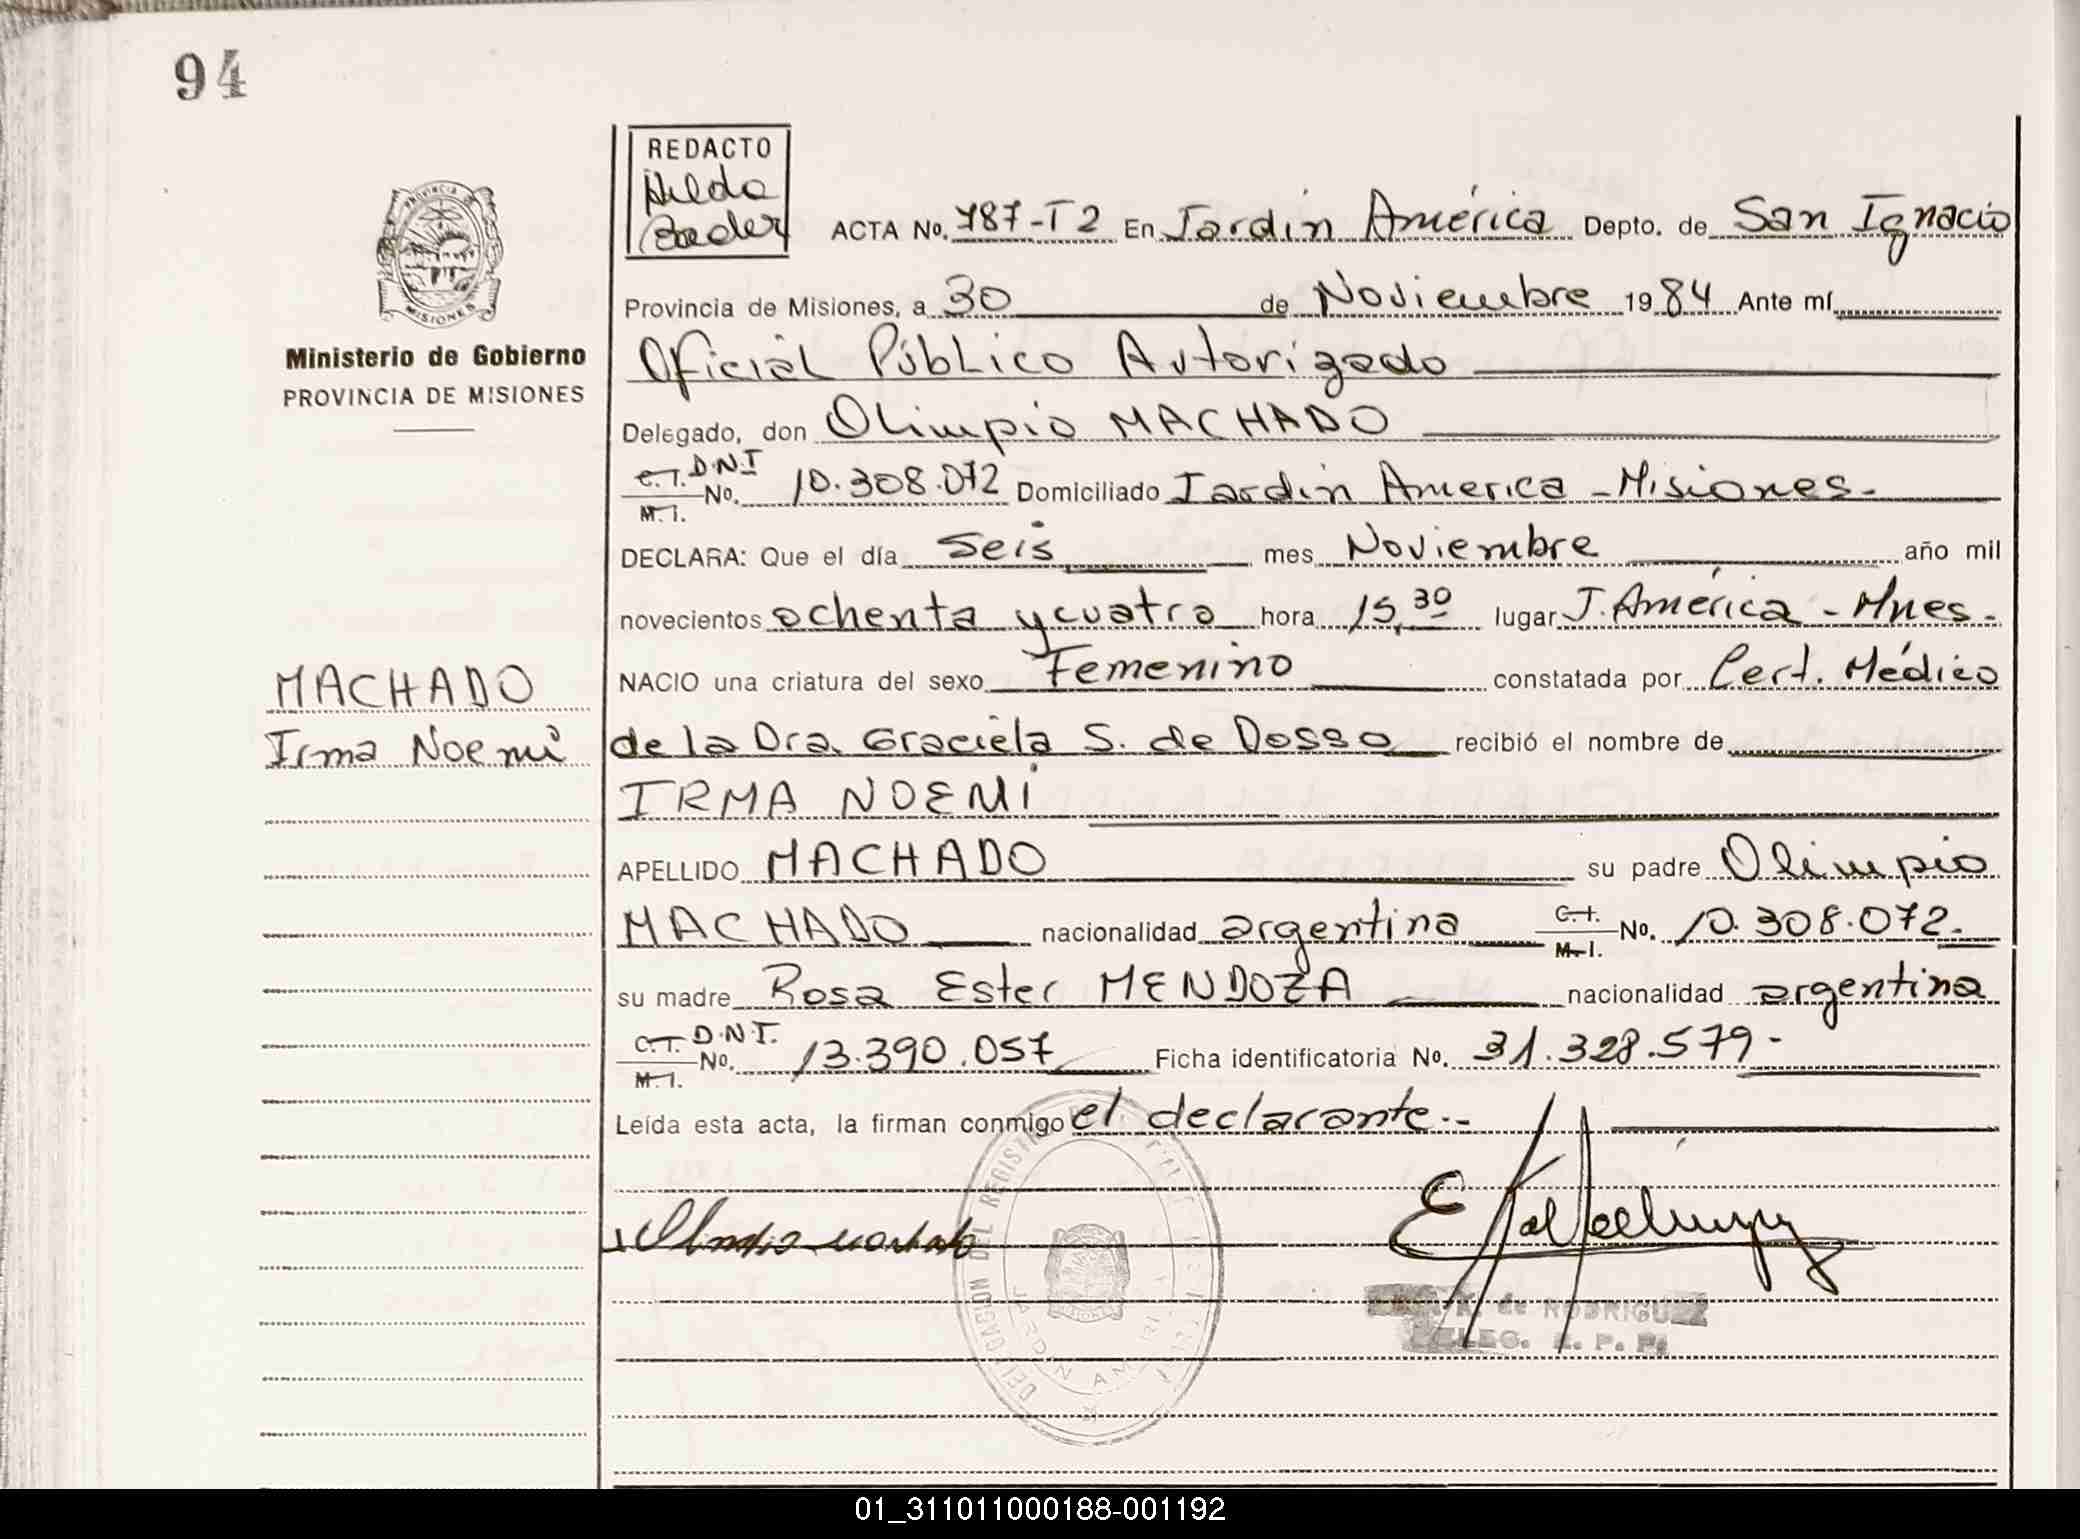 94
REDACTO
Hilda
Bader
ACTA No. 787-T2 En Jardin América Depto. de San Ignacio
PROVINCIA DE
MISIONES
Provincia de Misiones, a 30 de Noviembre 1984 Ante mí
Ministerio de Gobierno
PROVINCIA DE MISIONES
Oficial Público Autorizado
Delegado, don Olimpio MACHADO
C.I. D.N.I
M.I. No. 10.308.072 Domiciliado Jardin America - Misiones.
DECLARA: Que el día Seis mes Noviembre año mil
novecientos ochenta y cuatro hora 15,30 lugar J. América - Mnes.
NACIO una criatura del sexo Femenino constatada por Cert. Médico
MACHADO
Irma Noemi
de la Dra. Graciela S. de Dosso recibió el nombre de
IRMA NOEMI
APELLIDO MACHADO su padre Olimpio
MACHADO nacionalidad argentina C.I. M.I. No. 10.308.072.
su madre Rosa Ester MENDOZA nacionalidad argentina
C.I. D.N.I.
M.I. No. 13.390.057 Ficha identificatoria No. 31.328.579-
Leída esta acta, la firman conmigo el declarante.-
Olimpio Machado
DELEGACION DEL REGISTRO
JARDIN AMERICA
de RODRIGUEZ
DELEG. R. P. P.
01_311011000188-001192